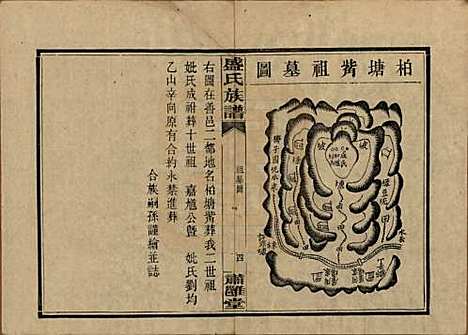 柏塘觜祖墓圖
盛氏族譜
祖墓圖
四
肅雝堂
右圖在善邑二都地名柏塘觜葬我二世祖
妣氏成祔葬十世祖 嘉尴公暨 妣氏劉均
乙山辛向原有合約永禁進葬
合族嗣孫謹繪並誌